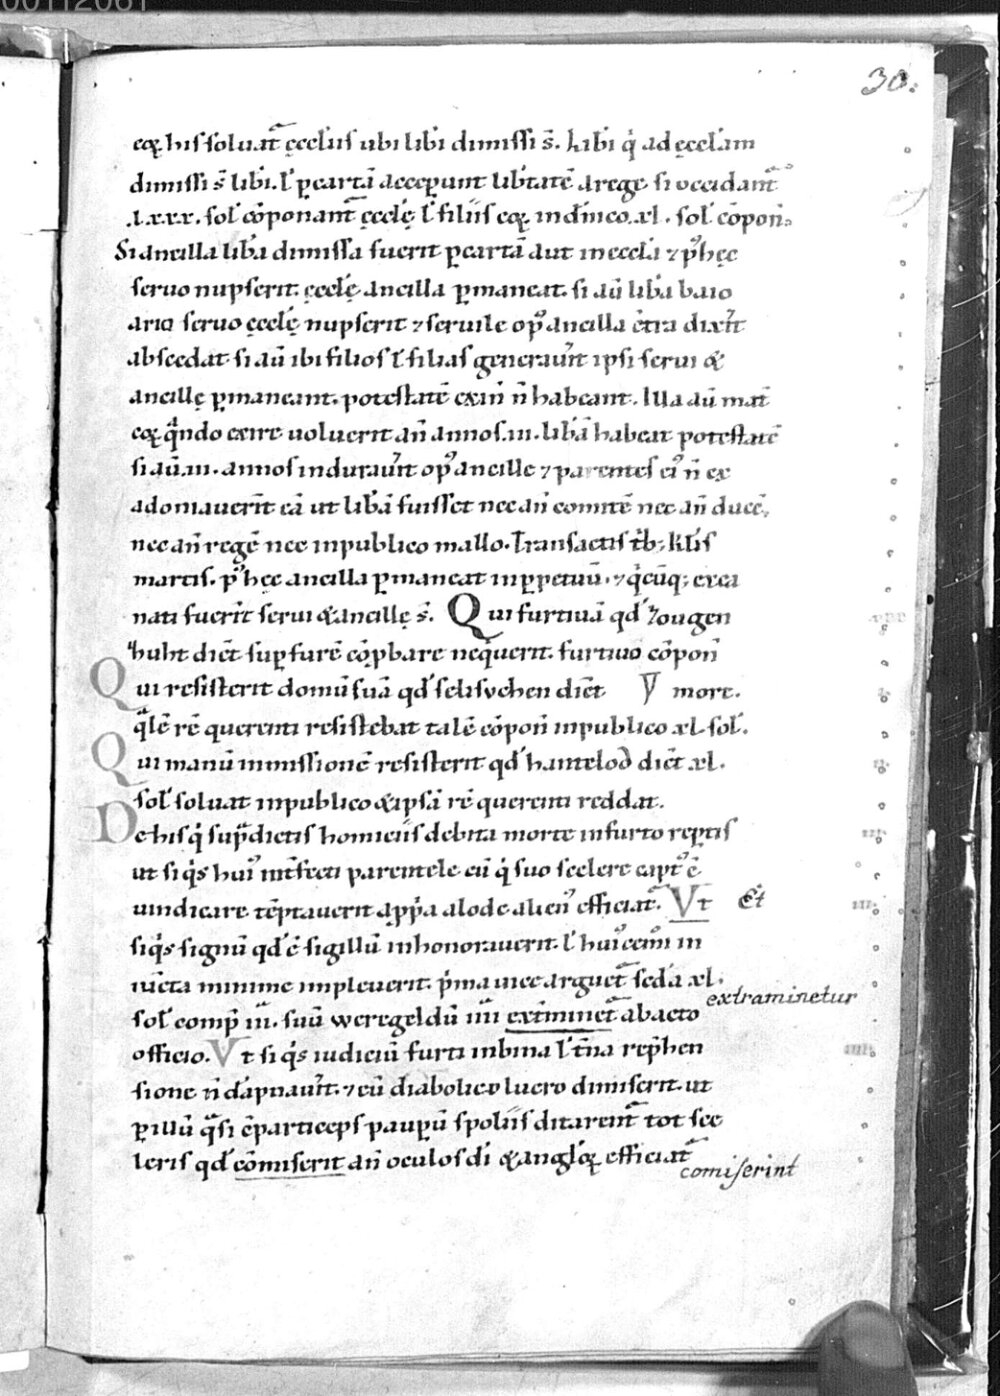 00112061
30.
eoꝝ his soluat̄ ęccl'iis ubi lib'i dimissi s̄. Lib'i q̇ ad ęccl'am
dimissi s̄ lib'i. l' ꝑ cartā acceperunt lib'tatē a rege si occidant̄
.Lxxx. sol' cōponant̄ ęcclę l' filiis eoꝝ in dn̄ico .xl. sol' cōpon̄
Si ancilla lib'a dimissa fuerit ꝑ cartā aut in eccl'a ⁊ p' hęc
seruo nupserit. ęcclę ancilla ꝑmaneat. si aū lib'a baio
aria seruo ęcclę nupserit ⁊ seruile op' ancilla c̄tra dix'it
abscedat si aū ibi filios l' filias generauer̄t ipsi serui &
ancillę ꝑmaneant. potestatē exin̄ n̄ habeant. Illa aū mat̄
eoꝝ q̄ndo exire uoluerit an̄ annos .iii. lib'ā habeat potestatē
si aū .iii. annos indurauer̄t op' ancille ⁊ parentes ei' n̄ ex
adoniauerīt eā ut lib'ā fuisset nec an̄ comitē nec an̄ ducē.
nec an̄ regē nec in publico mallo. Transactis t'b; kl'is
martis. p' hęc ancilla ꝑmaneat in ꝑpetuū. ⁊ q̇cūq; ex ea
nati fuerīt serui & ancillę s̄. Qui furtiuā qd' zougen
zuht dict̄ suꝑ furē cōp̱bare neq̇uerit. furtiuo cōpon̄
Qui resisterit domū suā qd' selisvchen dicīt mort.
q̄lē rē querenti resistebat talē cōpon̄ in publico xl sol'.
Qui manū inmissionē resisterit qd' hantelod dicīt xl.
sol' soluat in publico & ipsā rē querenti reddat.
De his q̇ sup̄dictis homiciis debita morte in furto reptis
ut si q̇s hui' int̄fecti parentele cū q̇ suo scelere capt' ē
uindicare tēptauerit a pp̄a alode alien' efficiat̄. Vt Et
si q̇s signū qd' ē sigillū inhonorauerit. l' hui'cem̄i in
iūcta minime impleuerit. p̄ma uice arguet̄ sed'a xl.
extraminetur
sol' comp̄ iii. suū weregeldū iiii ext'minet̄ ab acto
officio. Vt si q̇s iudiciū furti in bina l' t̄na rep̄hen
sione n̄ dāpnauer̄t. ⁊ cū diabolico lucro dimiserit. ut
ꝑ illū q̄si c̄particeps pauꝑū spoliis ditarent̄ tot sce
leris qd' cōmiserit an̄ oculos d'i & angl'oꝝ efficiat̄
comiserint